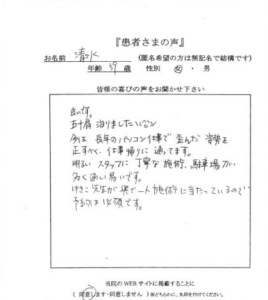 『患者さまの声』
お名前 清水 (匿名希望の方は無記名で結構です)
年齢 39 歳 性別 女・男
皆様の喜びの声をお聞かせ下さい
良いです。
五十肩 治りました
今は 長年のパソコン仕事で 歪んだ 姿勢を
正すべく、仕事帰りに 通ってます。
明るい スタッフに 丁寧な 施術、駐車場が
多く 通い易いです。
先生が 一人 施術に 当たっているので
予約は 必須です。
当院の WEB サイトに掲載することに
( 同意します・同意しません ) ※どちらかに、丸印を付けてください。